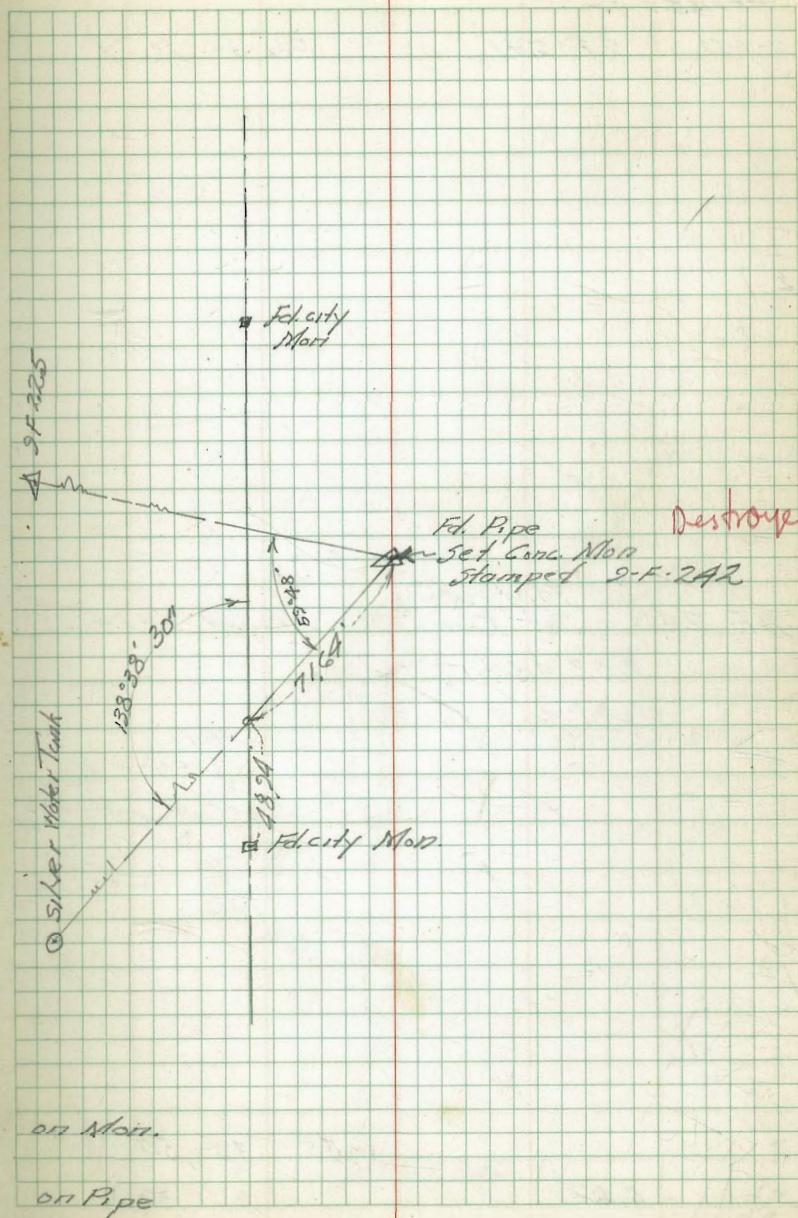 Fd. city
Mon
9F225
Fd. Pipe
Set Conc. Mon
Stamped 9-F-242
Destroye
59°48'
138°38'30"
71.64'
Silver Water Tank
48.94'
Fd. city Mon.
on Mon.
on Pipe